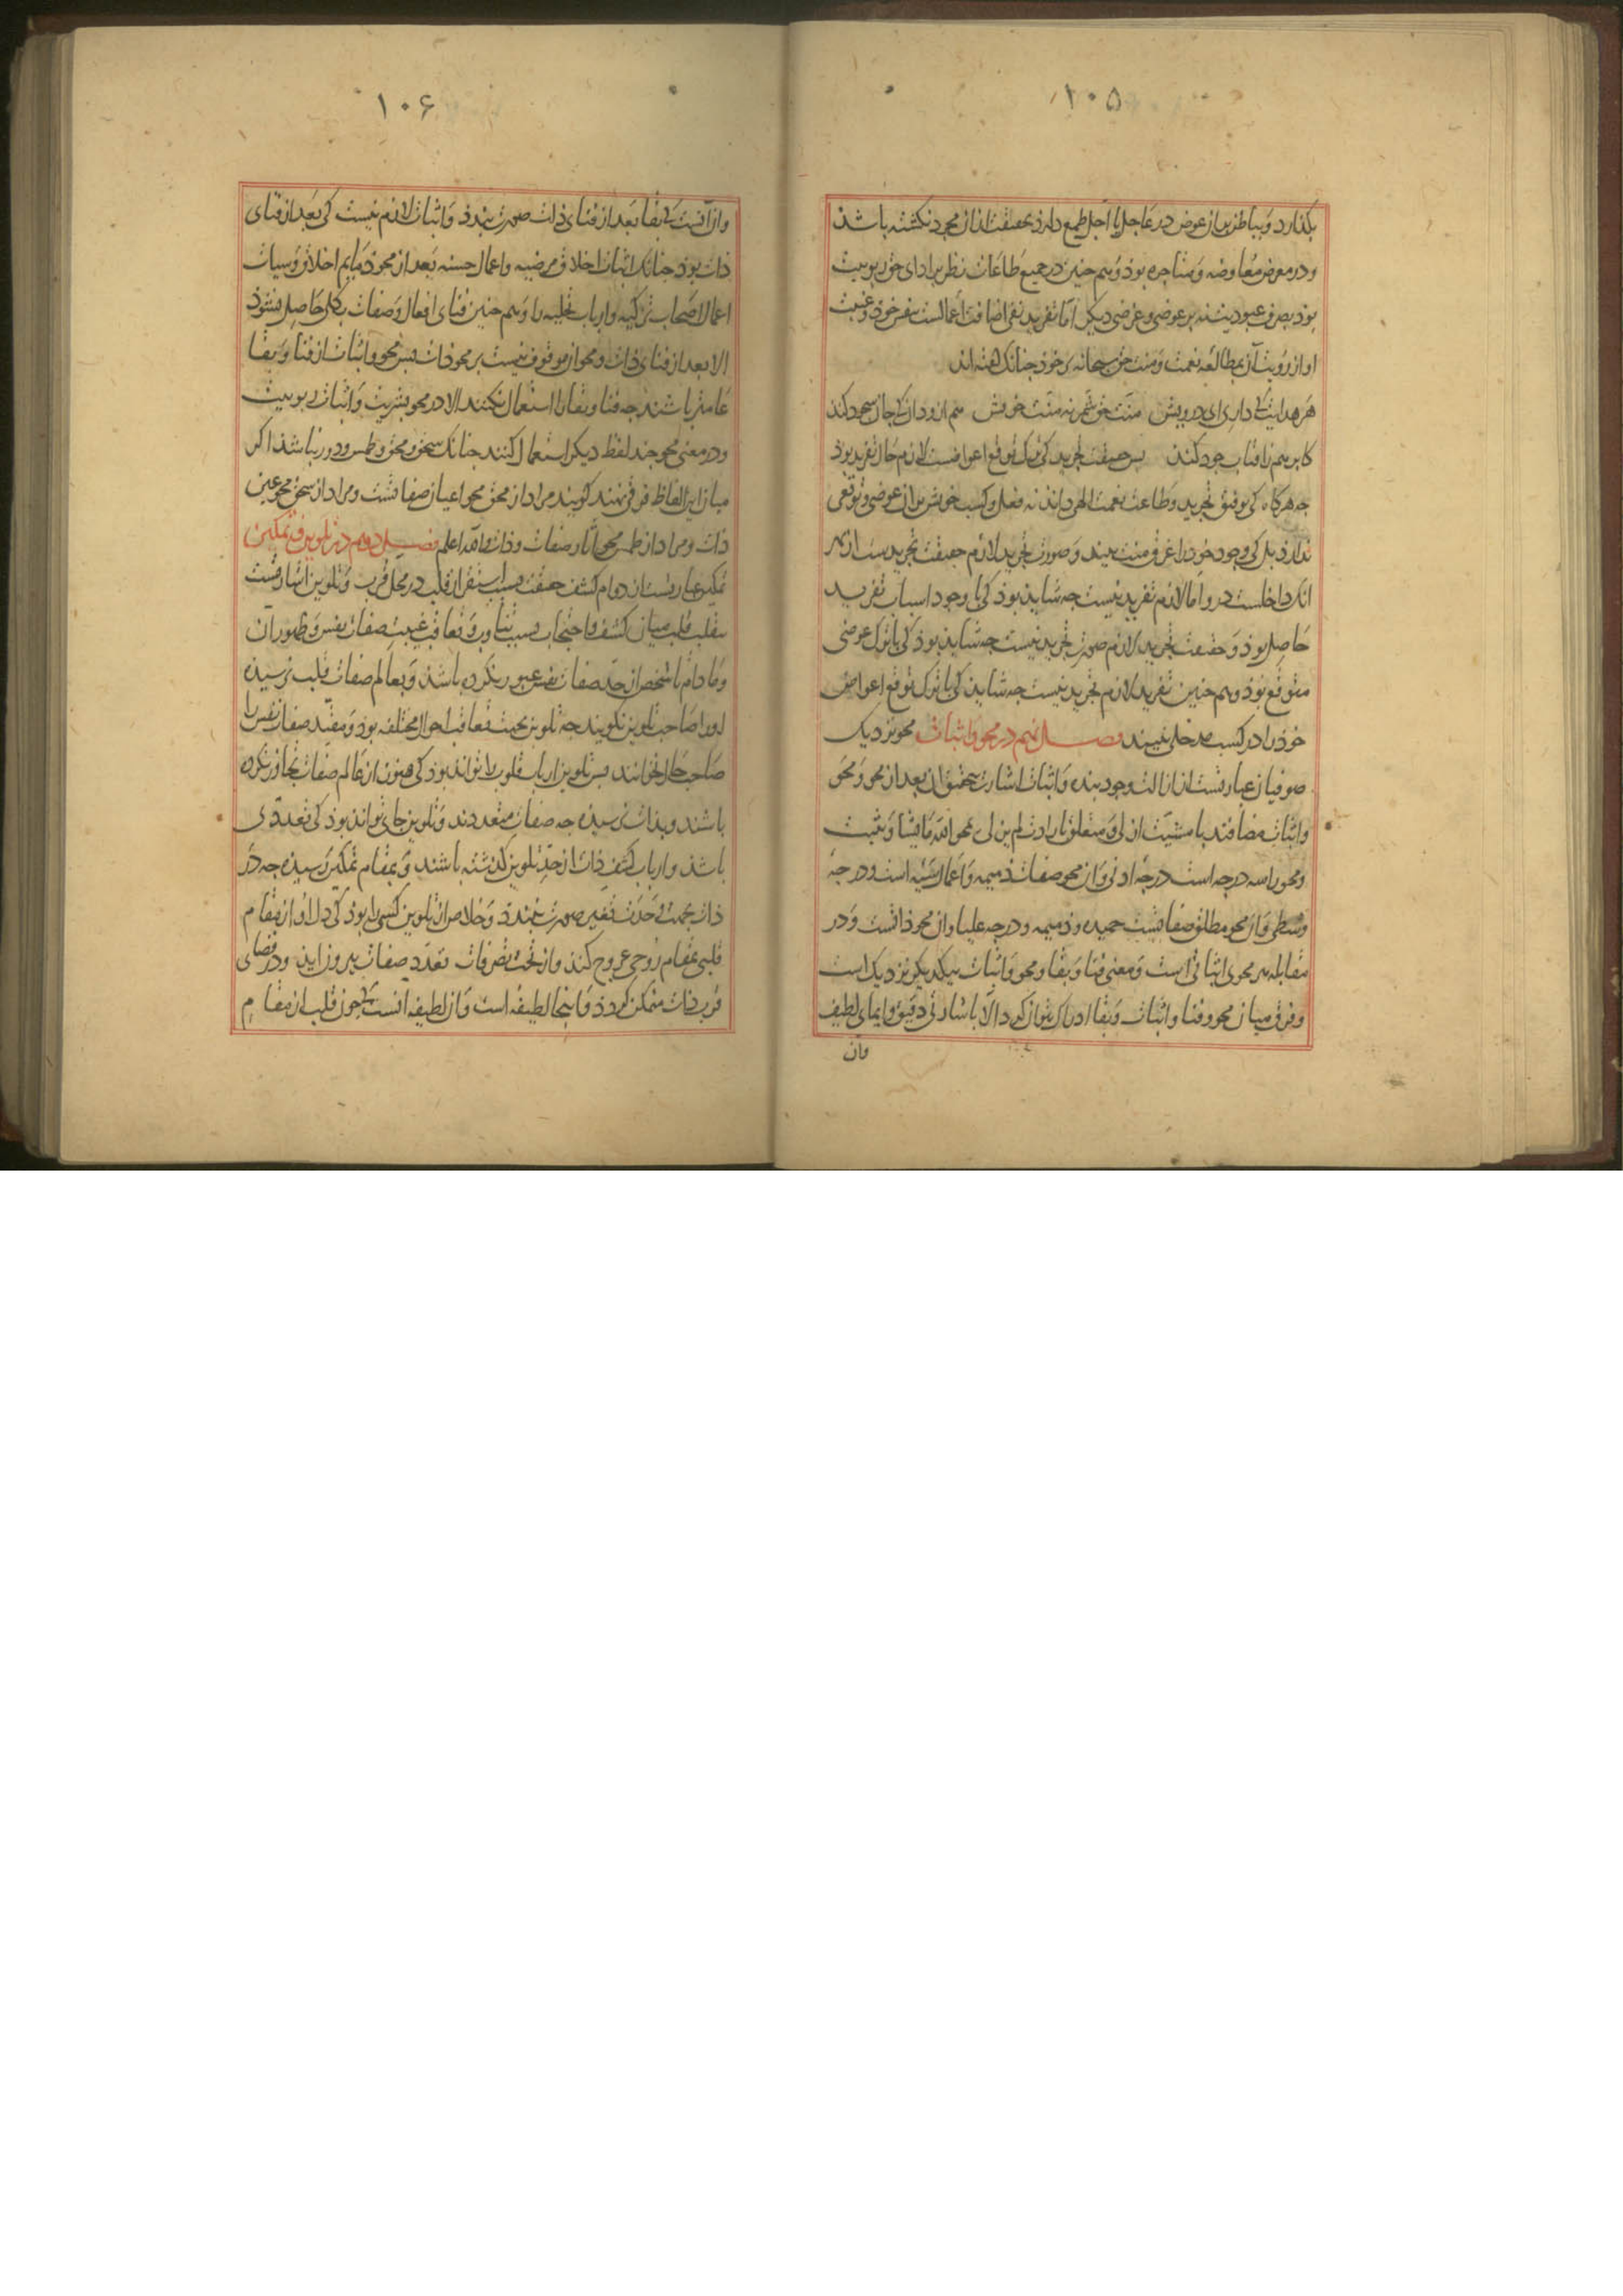 ۱۰۵
بکذارد و بباطن بران عوض در عاجل یا آجل طمع دارد بحقیقت ازان مجرد نکشته باشد
و در معرض معاوضه و متاجره بود و هم جنین در جمیع طاعات نظر بر ادای حق ربوبیت
بود بصرف عبودیت نه بر عوضی و غرضی دیکر اما تفرید نفی اضافت اعمالست بنفس خود و غیبت
او از رویت آن بمطالعه نعمت و منت حق سبحانه بر خود جنانک کفته اند
هر هدایت که داری ای درویش منت حق شمر نه منت خویش هم ازو دان که جان سجود کند
کابر هم زافتاب جود کند بس حقیقت تجرید کی ترک توقع اعواضست لازم حال تفرید بود
جه هرکاه کی توفیق تجرید و طاعت نعمت الهی داند نه فعل و کسب خویش بران عوضی و توقعی
ندارد بل کی وجود خود را غرق منت بیند و صورت تجرید لازم حقیقت تجریدست از بهر
انک داخلست درو اما لازم تفرید نیست جه شاید بود کی با وجود اسباب تفرید
حاصل بود و حقیقت تجرید لازم صورت تجرید نیست جه شاید بود کی با ترک عوضی
متوقع بود و هم جنین تفرید لازم تجرید نیست جه شاید کی با ترک توقع اعواض
خود را در کسب مدخلی نبیند فصل نهم در محو و اثبات محو نزدیک
صوفیان عبارتست از ازالت وجود بنده و اثبات اشارت بتحقیق ان بعد از محو و محو
و اثبات مضافند با مشیت ازلی و متعلق بارادت لم یزلی یمحو الله ما یشا و یثبت
و محو را سه درجه است درجه ادنی و ان محو صفات ذمیمه و اعمال سیئه است و درجه
وسطی و ان محو مطلق صفاتست حمیده و ذمیمه و درجه علیا و ان محو ذاتست و در
مقابله هر محوی اثباتی است و معنی فنا و بقا و محو و اثبات بیکدیکر نزدیک است
و فرق میان محو و فنا و اثبات و بقا ادراک نتوان کرد الا باشارتی دقیق و ایمای لطیف
وان
۱۰۶
وان آنست که بقا بعد از فنای ذات صورت بندد و اثبات لازم نیست کی بعد از فنای
ذات بود جنانک اثبات اخلاق مرضیه و اعمال حسنه بعد از محو ذمایم اخلاق و سیات
اعمال اصحاب تزکیه و ارباب تحلیه را و هم جنین فنای افعال و صفات بکلی حاصل نشود
الا بعد از فنای ذات و محو ان موقوف نیست بر محو ذات بس محو و اثبات از فنا و بقا
عامتر باشند جه فنا و بقا را استعمال نکنند الا در محو بشریت و اثبات ربوبیت
و در معنی محو جند لفظ دیکر استعمال کنند جنانک سحق و محق و طمس و دور نباشد اکر
میان این الفاظ فرقی نهند کویند مراد از محق محو اعیان صفاتست و مراد از سحق محو عین
ذات و مراد از طمس محو آثار صفات و ذات والله اعلم فصل دهم در تلوین و تمکین
تمکین عبارتست از دوام کشف حقیقت بسبب استقرار قلب در محل قرب و تلوین اشارتست
بتقلب قلب میان کشف و احتجاب بسبب تناوب و تعاقب غیبت صفات نفس و ظهور آن
و ما دام تا شخص از حد صفات نفس عبور نکرده باشد و بعالم صفات قلب نرسیده
او را صاحب تلوین نکویند جه تلوین بجهت تعاقب احوال مختلفه بود و مقید صفات نفس را
صاحب حال نخوانند بس تلوین ارباب قلوب را تواند بود کی هنوز از عالم صفات تجاوز نکرده
باشند و بذات نرسیده جه صفات متعددند و تلوین جای تواند بود کی تعددی
باشد و ارباب کشف ذات از حد تلوین کذشته باشند و بمقام تمکین رسیده جه در
ذات بجهت وحدت تغیر صورت نبندد و خلاص از تلوین کسی را بود کی دل او از مقام
قلبی بمقام روحی عروج کند و از تحت تصرفات تعدد صفات بیرون اید و در فضای
قرب ذات متمکن کردد و اینجا لطیفه است و ان لطیفه انست که جون قلب از مقام